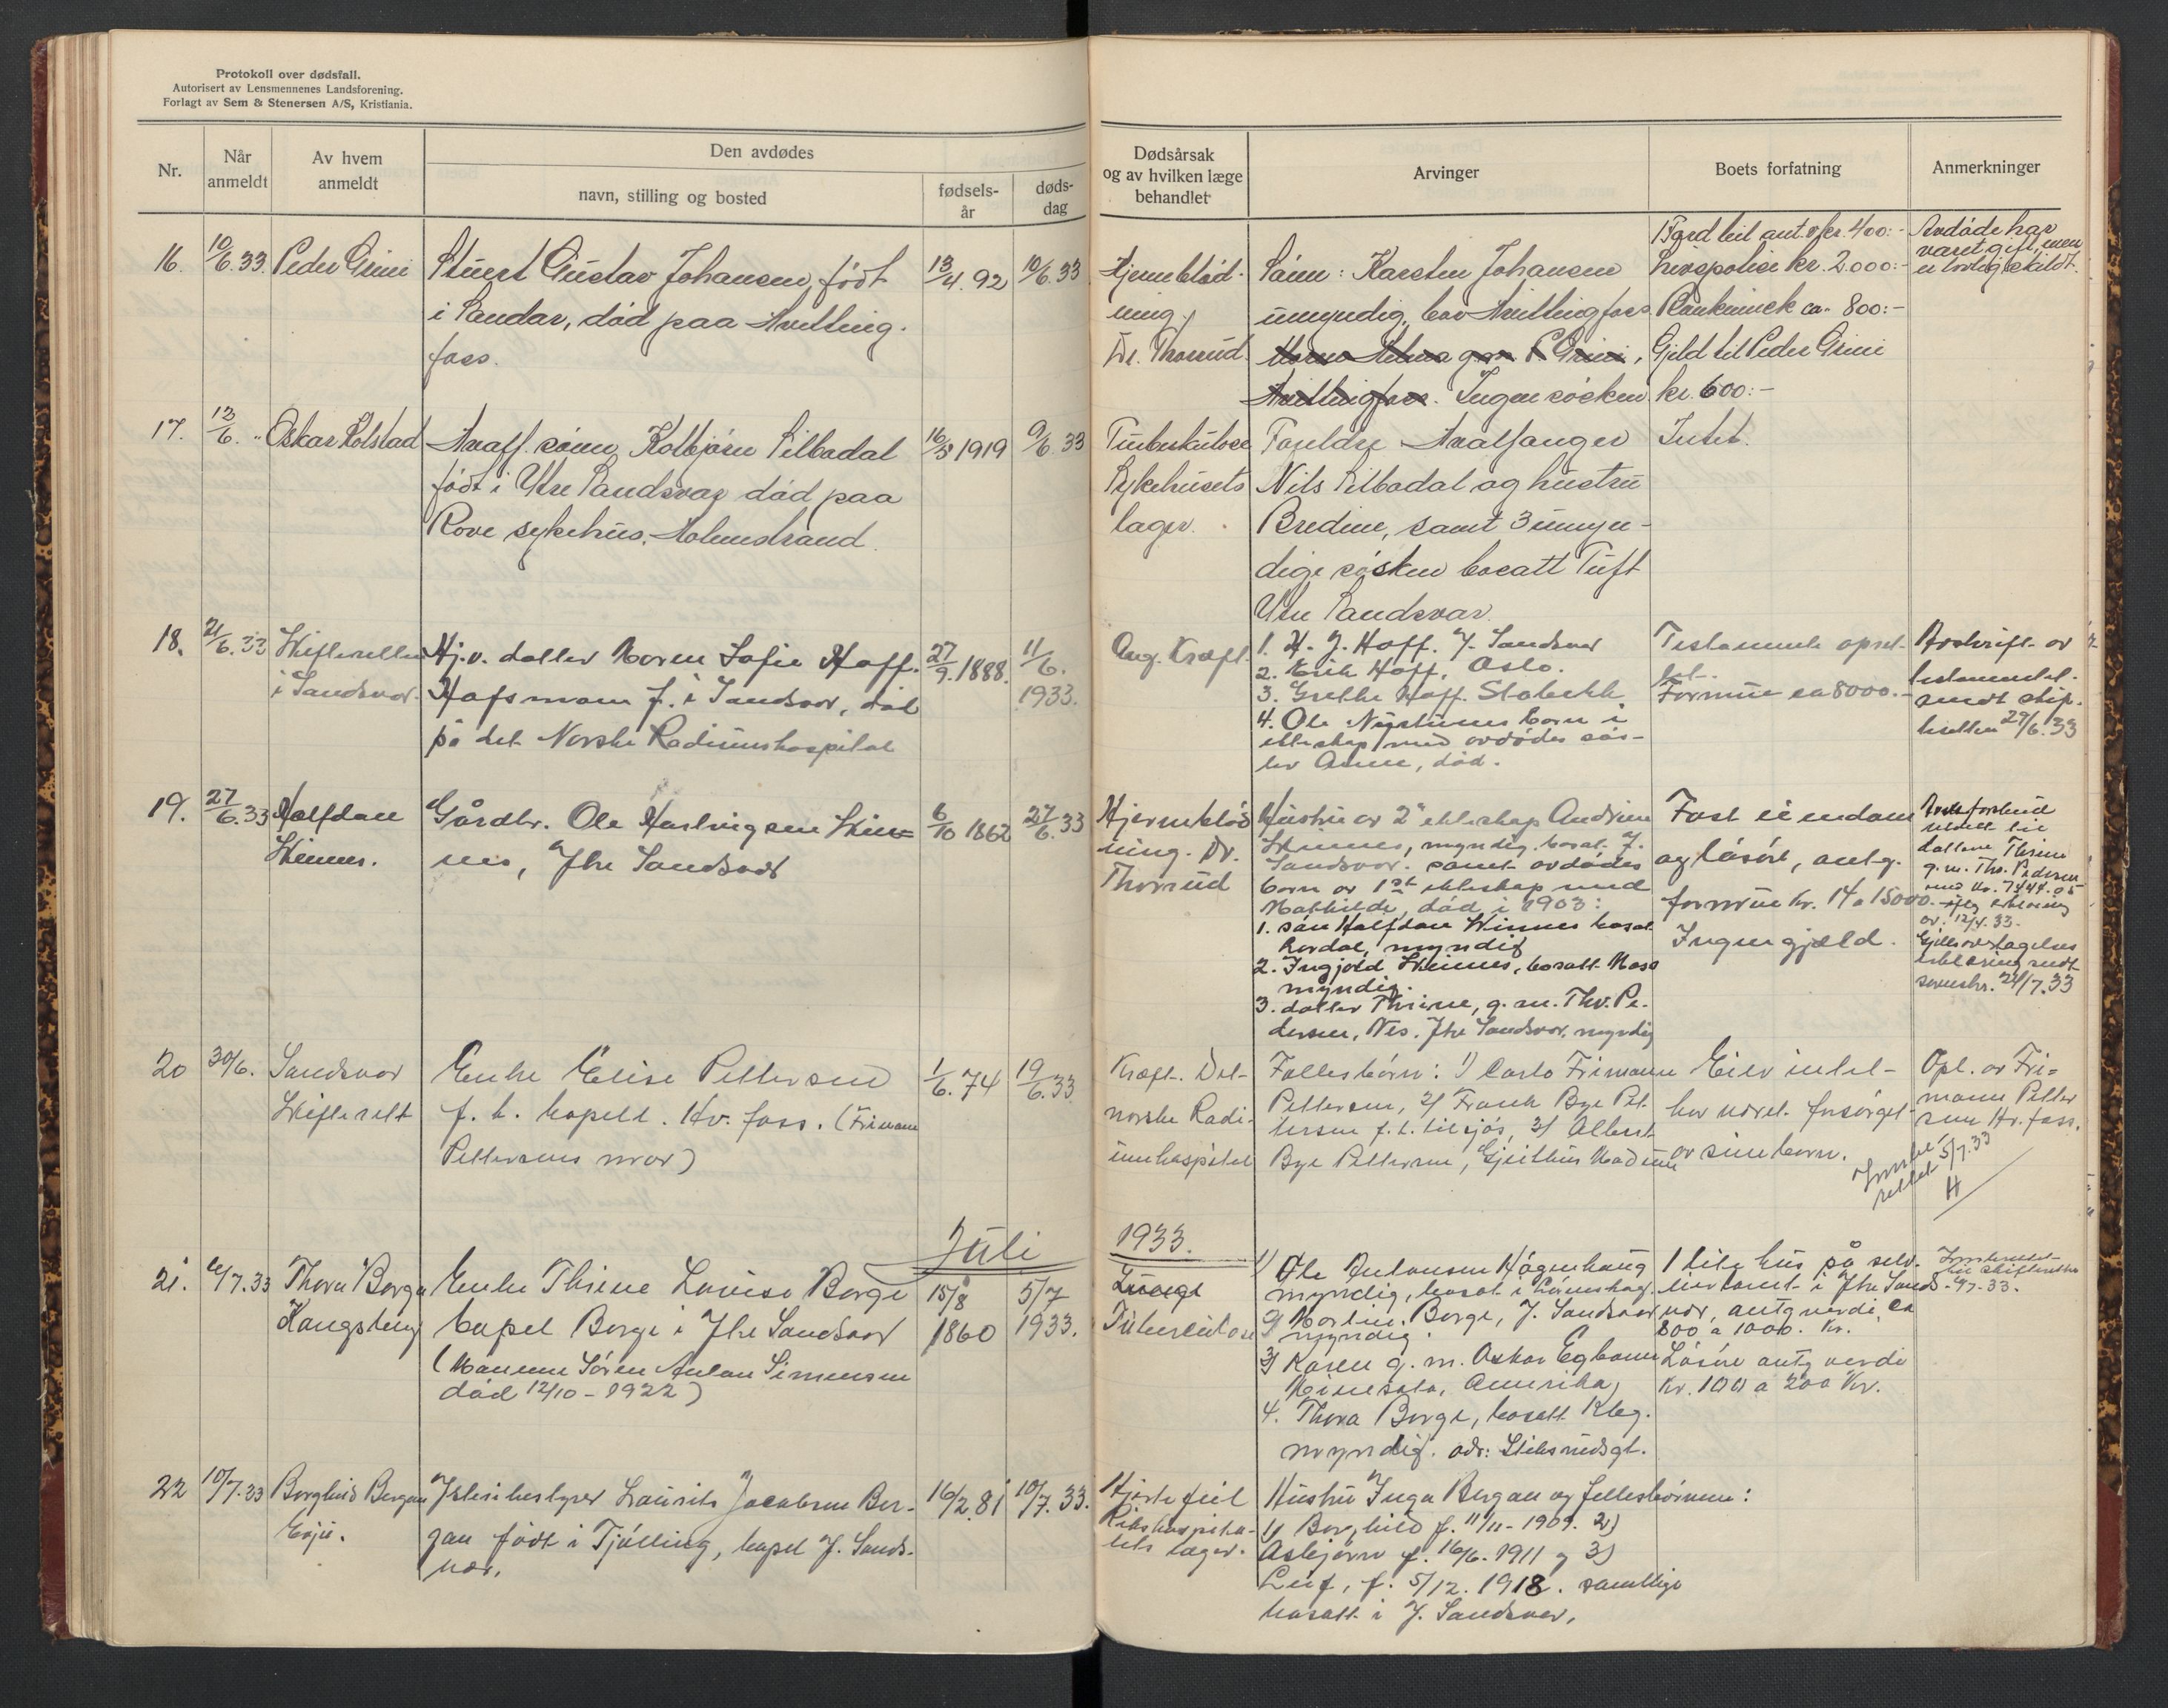 Protokoll over dødsfall.
Autorisert av Lensmennenes Landsforening.
Forlagt av Sem & Stenersen A/S, Kristiania.
Nr.
Når anmeldt
Av hvem anmeldt
Den avdødes
navn, stilling og bosted
fødsels-år
døds-dag
Dødsårsak og av hvilken læge behandlet
Arvinger
Boets forfatning
Anmerkninger
16. 10/6.33. Peder Grini
Gustav Johansen, født
i Sandar, død paa Hvitting-
foss.
13/4.92 10/6.33
Hjerneblød-
ning.
Dr. Thorrud.
Sønn: Karsten Johansen
umyndig, bor Hvittingfoss.
Ingen søsken
Ford bil ant. v. kr. 400:-
Livspolise kr. 2.000:-
Bankinnsk ca. 800:-
Gjeld til Peder Grini
kr. 600:-
Avdøde har
været gift, men
er lovlig skildt.
17. 13/6. " Oskar Kolstad
Hvalf. sønn Kolbjørn
født i Ytre Sandsvær død paa
Rove sykehus, Holmestrand.
16/5 1919 9/6 33
Tuberkulose
Sykehusets
læger.
Foreldre Hvalfanger
Nils og hustru
Bredine, samt 3 umyn-
dige søsken bosatt Tuft
Ytre Sandsvær.
Intet.
18. 21/6.33 Skifteretten
i Sandsvær.
Hj.v. datter Maren Sofie Hoff.
f. i Sandsvær, død
på det Norske Radiumhospital
27/9.1888. 11/6.
1933.
Ang. Kræft.
1. H. J. Hoff. Y. Sandsvær
2. Erik Hoff, Oslo.
3. Grethe Hoff. Stabekk
4. Ole Nystuens barn i
ekteskap med avdødes søs-
ter Anne, død.
Testamente opret-
tet.
Formue ca 8000.-
Avskrift av
testamentet.
sendt skif-
teretten 29/6.33
19. 27/6.33 Halfdan
Skinnes.
Gårdbr. Ole Skin-
nes, Ytre Sandsvær
6/10 1862 27/6.33
Hjerneblød
ning. Dr.
Thorrud
Hustru av 2. ekteskap Andrine
Skinnes, myndig. bosat Y.
Sandsvær. samt avdødes
barn av 1st ekteskap med
Mathilde, død i 1903:
1. søn Halfdan Skinnes bosat
myndig
2. Ingjold Skinnes, bosatt Moss
myndig.
3. datter Thrine, g. m. Thv. Pe-
dersen, Nes. Ytre Sandsvær. myndig
Fast eiendom
og løsøre, antg.
formue kr. 14 a 15000.-
Ingen gjæld.
datteren Thrine
g. m. Thv. Pedersen
erklæring
av. 12/4. 33.
Gjelsovertagelses
erklæring sendt
sorenskr. 24/7.33
20 30/6. Sandsvær
Skifterett
Enke Elise Pettersen
f. h. bopell. Hv. foss. (Frimann
Pettersens mor)
1/6.74 19/6.33
Kræft. Det
norske Radi-
umhospital
Fællesbørn: 1) Carlo Frimann
Pettersen, 2) Frank Bye Pet-
tersen f. t. tilsjøs, 3) Albert
Bye Pettersen, Geithus Modum
Eier intet-
har været forsørget
av sine barn.
Opl. av Fri-
mann Petter
sen Hv. foss.
5/7.33
H
Juli 1933.
21. 6/7.33 Thora Borge
Kongsberg
Enke Thrine Lovise Borge
bopel Borge i Ytre Sandsvær
(Mannen Søren Anton Simensen
død 12/10-1922)
15/8
1860
5/7
1933.
Lunge
Tuberculose
1) Ole Antonsen Høgenhaug
myndig, bosat i
2) Martin Borge, Y. Sandsvær
myndig.
3) Karen g. m. Oskar Egbom
Minesota, Amerika,
4. Thora Borge, bosatt Kbg.
myndig. adr: Stiksrudsgt.
1 lite hus på selv-
eiertomt i Ytre Sands-
vær, antg verdi ca
800 a 1000. kr.
Løsøre antg verdi
Kr. 100 a 200 Kr.
22 10/7.33 Borghild Bergan
Eyje.
Isteribestyrer Laurits Jacobsen Ber-
gan født i Tjølling, bopel Y. Sands-
vær.
16/2.81 10/7.33.
Hjertefeil
Rikshospita-
lets læger.
Hustru Inga Bergan og fellesbørnene:
1) Borghild f. 11/11-1909. 2)
Asbjørn f. 16/6-1911 og 3)
Leif, f. 5/12. 1918. samtlige
bosatt i Y. Sandsvær.